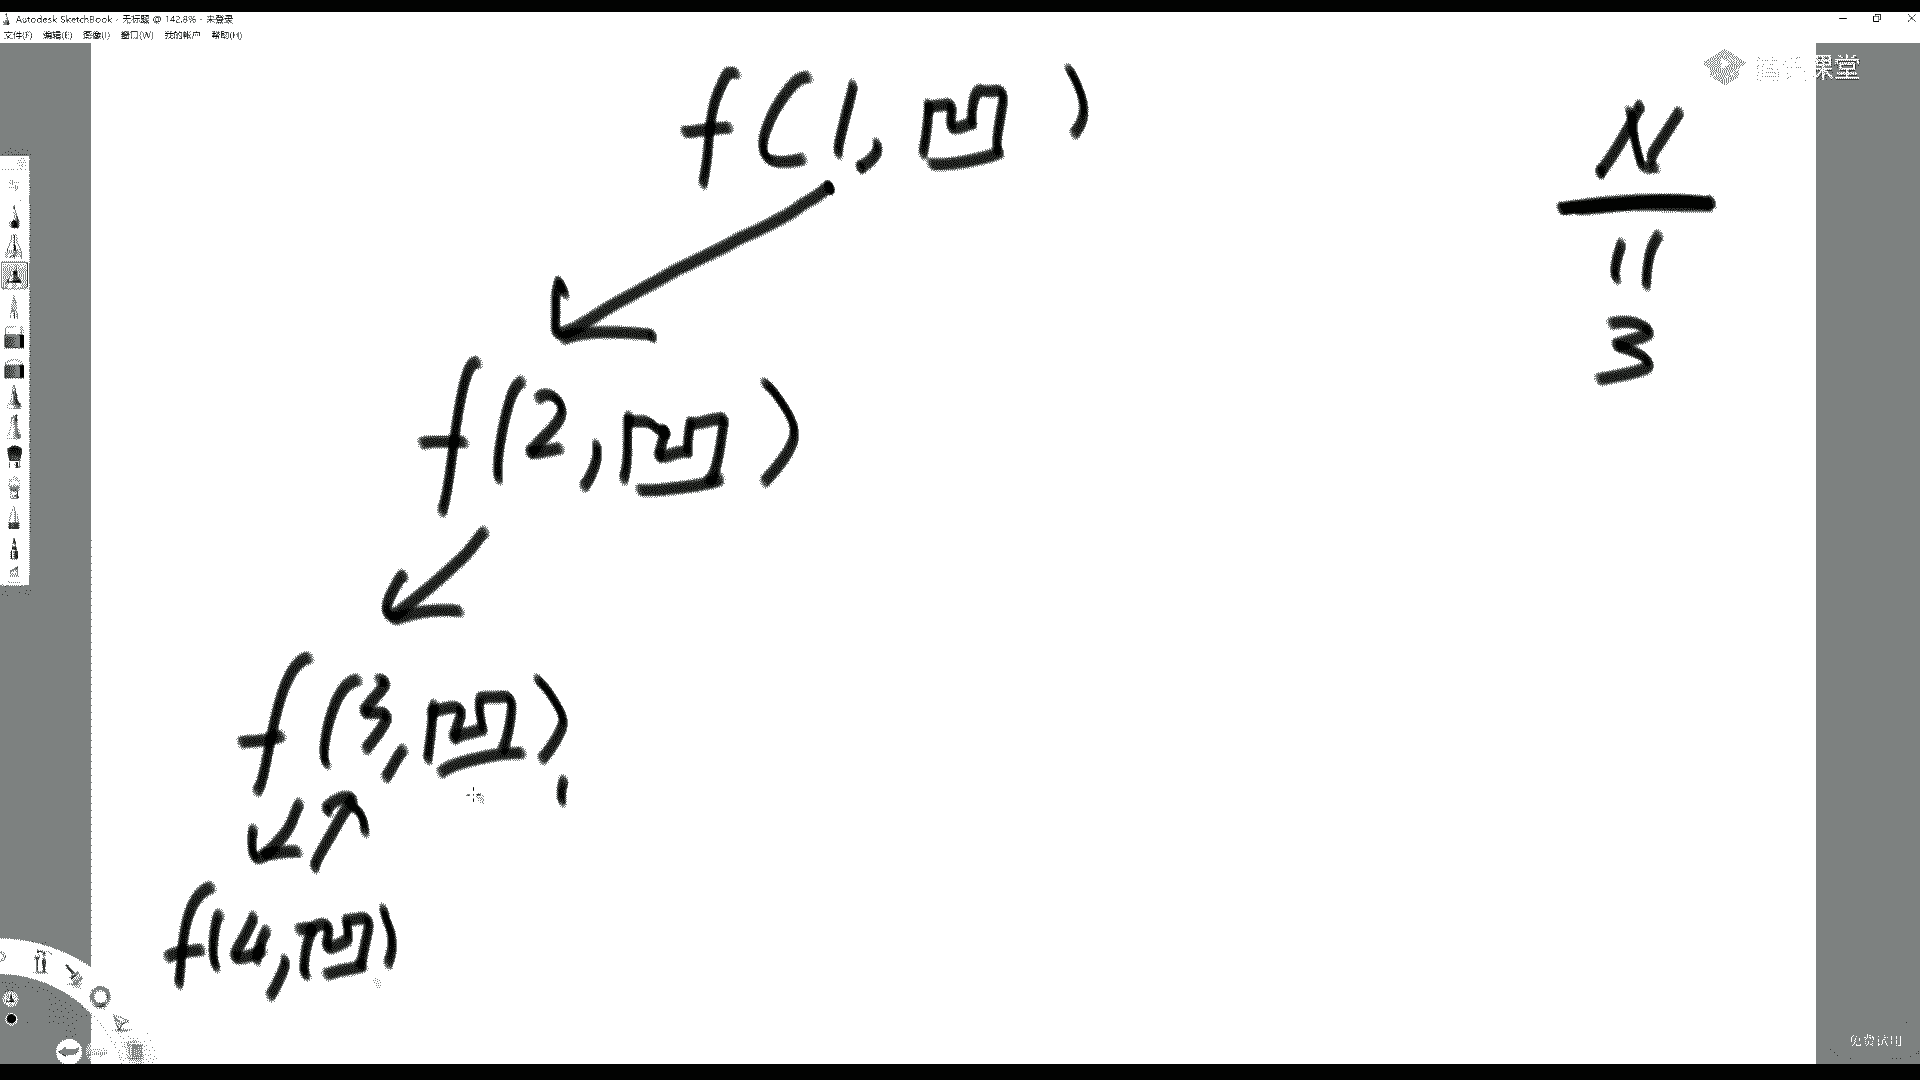 Autodesk SketchBook - 无标题 @ 142.8% - 未登录
文件(F) 编辑(E) 图像(I) 窗口(W) 我的帐户 帮助(H)
腾讯课堂
f(1,凹)
N
=
3
f(2,凹)
f(3,凹)
f(4,凹)
免费试用